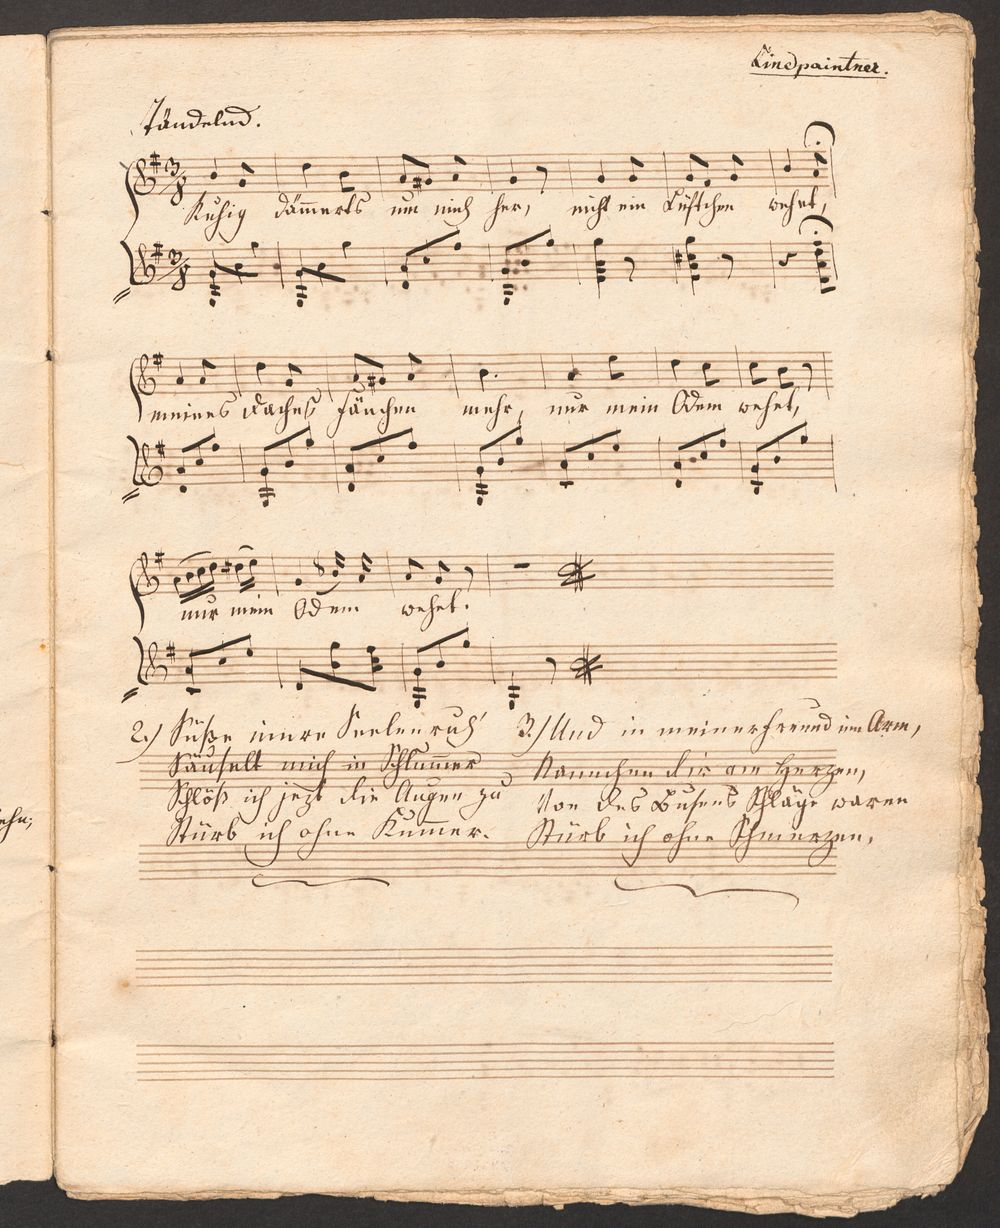 Lindpaintner.
Tändelnd.
Ruhig dämmerts um mich her, nicht ein Lüftchen wehet,
meines Daches Fänchen mehr, nur mein Odem wehet,
nur mein Odem wehet.
2.) Süße innre Seelenruh'
Säuselt mich in Schlum̄er
Schlöß ich jezt die Augen zu
Stürb ich ohne Kum̄er.
3.) Und in meiner Freund im Arm,
Nannchen dir am Herzen,
Von des Busens Schläge waren
Stürb ich ohne Schmerzen,
ehn;